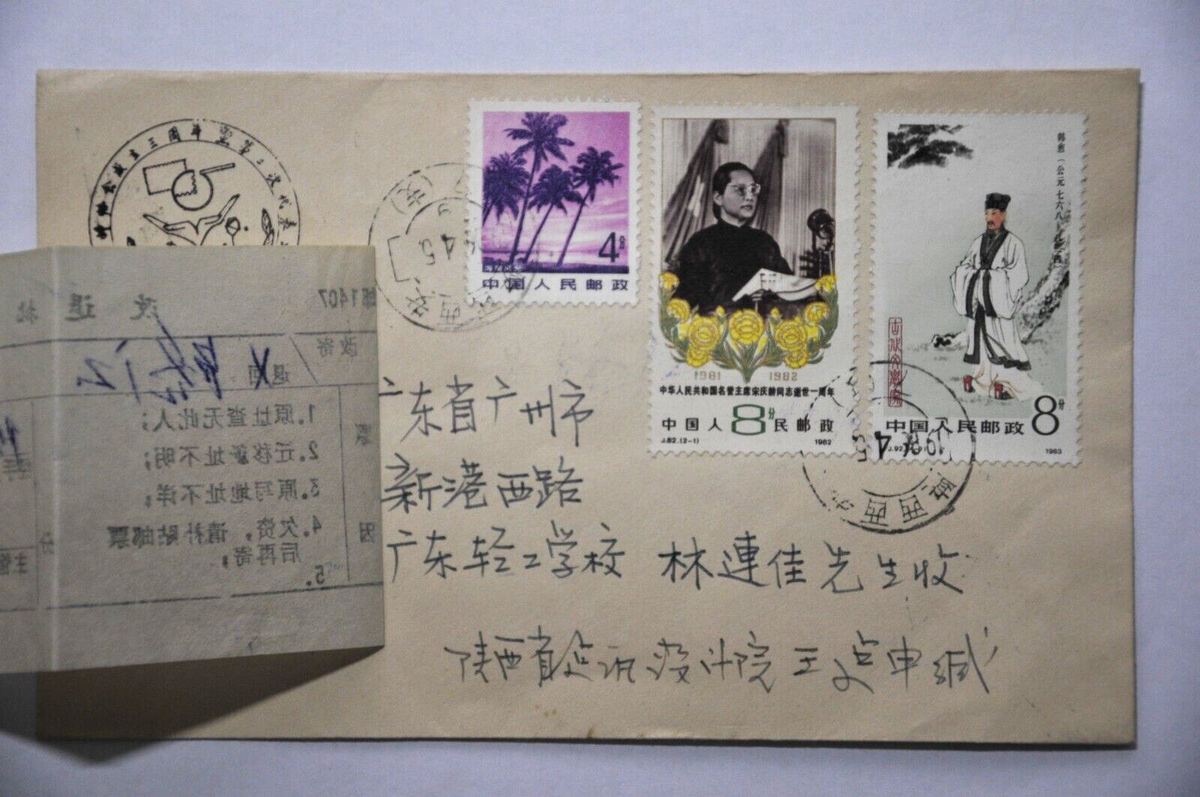 4分
海南风光
中国人民邮政
1981 1982
中华人民共和国名誉主席宋庆龄同志逝世一周年
中国人8分民邮政
J.82.(2-1) 1982
韩愈(公元七六八
中国人民邮政 8分
1983
邮1407
改退批
改寄
退回
原因
1.原址查无此人;
2.迁移新址不明;
3.原写地址不详;
4.欠资,请补贴邮票
后再寄;
5.
广东省广州市
新港西路
广东轻工学校 林連佳先生收
陕西省 设计院王 申缄
陕西西安